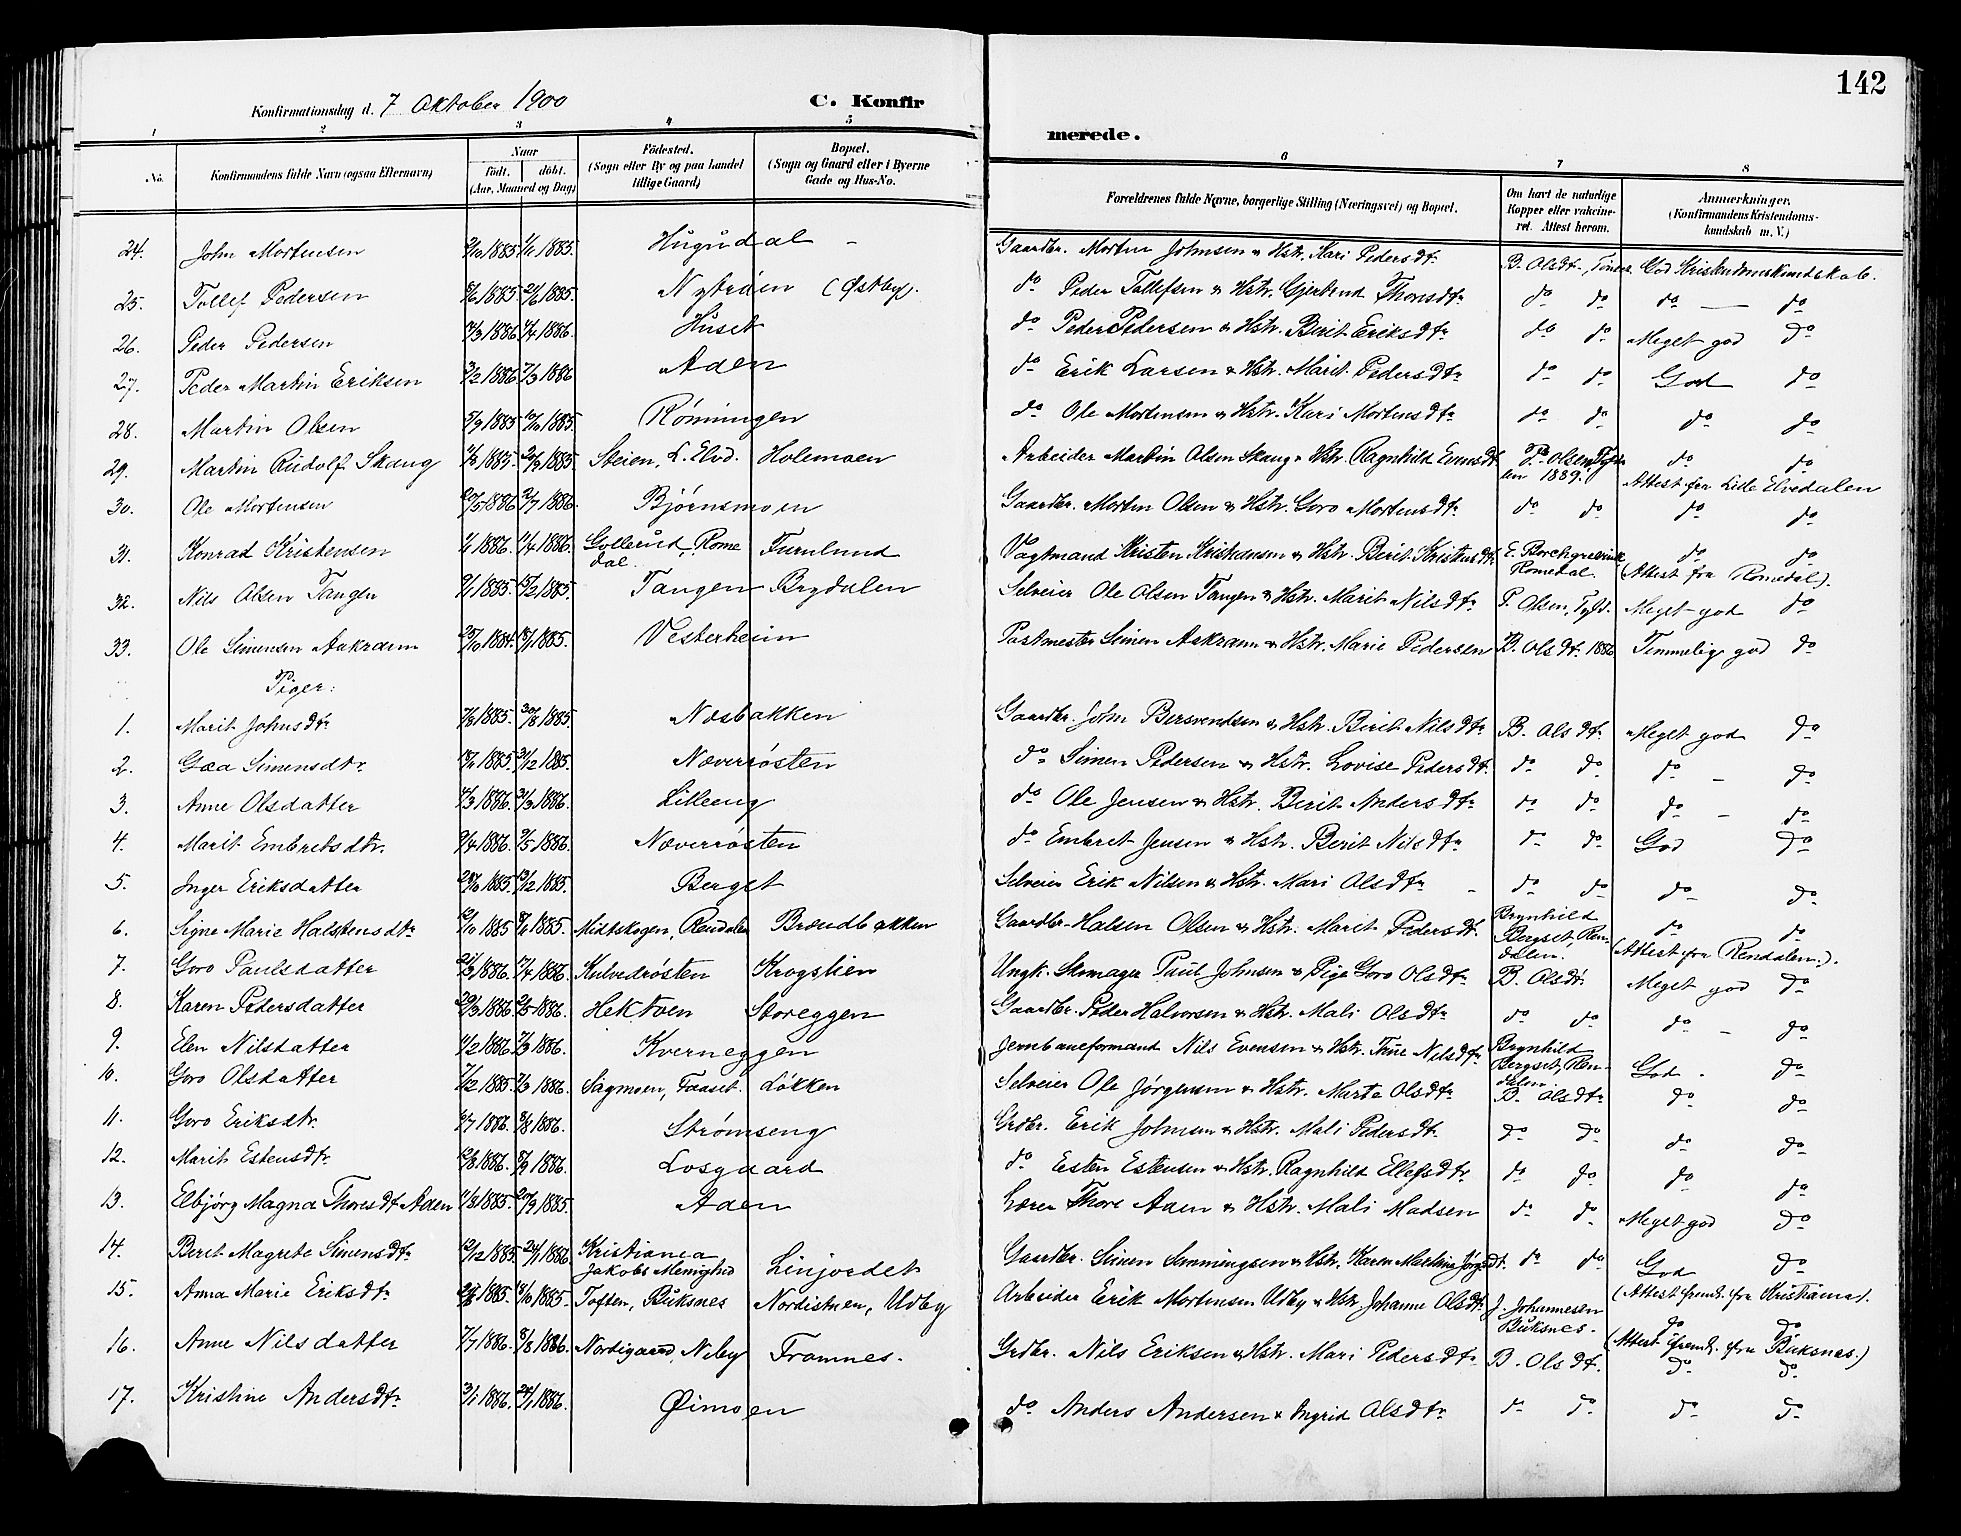 142
Konfirmationsdag d. 7 Oktober 1900
C. Konfir
merede.
1 2 3 4 5 6 7 8
No.
Konfirmandens fulde Navn (ogsaa Efternavn)
Naar
født. døbt.
(Aar, Maaned og Dag)
Fødested.
(Sogn eller By og paa Landet
tillige Gaard)
Bopæl.
(Sogn og Gaard eller i Byerne
Gade og Hus-No.
Forældrenes fulde Navne, borgerlige Stilling (Næringsvei) og Bopæl.
Om havt de naturlige
Kopper eller vakcine-
ret. Attest herom.
Anmærkninger.
(Konfirmandens Kristendoms-
kundskab m.V.)
24. John Mortensen 1885 1885 Hugudal Gaardbr. Morten Johnsen & Hstr. Mari Pedersdtr B. Olsdtr, God Kristendomskundskab.
25. Tollef Pedersen 1885 1885 Nytrøen (Østby). do Peder Tollefsen & Hstr. Gjertrud Thoresdtr do do do — do
26. Peder Pedersen 1886 1886 Huset do Peder Pedersen & Hstr. Berit Eriksdtr do do Meget god do
27. Peder Martin Eriksen 3/2 1886 7/3 1886 Aden do Erik Larsen & Hstr. Marit Pedersdtr do do God do
28. Martin Olsen 5/9 1885 1885 Rønningen do Ole Mortensen & Hstr. Kari Mortensdtr do do do do
29. Martin Rudolf Skaug 1885 1885 Steien, L. Elvd. Holemoen Arbeider Martin Olsen Skaug & Hstr. Ragnhild Evensdtr P. Olsen Tyld- do do
len 1889. Attest fra Lille Elvedalen
30. Ole Mortensen 1886 2/7 1886 Bjørnsmoen Gaardbr. Morten Olsen & Hstr. Goro Mortensdtr do do do do
31. Konrad Kristensen 1886 1886 Gollerud, Rome Furulund Vogtmand Kristen Kristensen & Hstr. Berit Kristensdtr E. Borchgrevink do do
dal. Romedal. (Attest fra Romedal).
32. Nils Olsen Tangen 1885 1885 Tangen Brydalen Selveier Ole Olsen Tangen & Hstr. Marit Nilsdtr P. Olsen, Tyld. Meget god do
33. Ole Simensen Aakrann 1884 1885 Vesterheim Postmester Simen Aakrann & Hstr. Marie Pedersen B. Olsdtr. 1886 Temmelig god do
Piger:
1. Marit Johnsdtr 1885 30/8 1885 Næsbakken Gaardbr. John Bersvendsen & Hstr. Berit Nilsdtr B. Olsdtr. Meget god do
2. Goa Simensdtr. 1885 1885 Næverrøsten do Simen Pedersen & Hstr. Lovise Pedersdtr. do do do – do
3. Anne Olsdatter 1886 1886 Lilleeng do Ole Jensen & Hstr. Berit Andersdtr do do do – do
4. Marit Embretsdtr. 9/4 1886 9/5 1886 Næverrøsten do Embret Jensen & Hstr. Berit Nilsdtr do do God do
5. Inger Eriksdatter 1885 1885 Berget Selveier Erik Nilsen & Hstr. Mari Olsdtr do do do do
6. Signe Marie Halstensdtr 1885 1885 Midtskogen, Rendalen Brændbakken Gaardbr. Halsen Olsen & Hstr. Marit Pedersdtr. Brynhild do do
Bergset, Ren-
dalen. (Attest fra Rendalen.).
7. Goro Paulsdatter 1886 1886 Kulvedrøsten Krogstien Ungk. Skomager Paul Johnsen & Pige Goro Olsdtr B. Olsdtr. Meget god do
8. Karen Pedersdatter 1886 1886 Hektoen Storeggen Gaardbr. Peder Halvorsen & Hstr. Mali Olsdtr do do do – do
9. Elen Nilsdatter 1886 7/3 1886 Kverneggen Jernbaneformand Nils Evensen & Hstr. Thine Nilsdtr Brynhild
Bergset, Ren-
dalen God. do
10. Goro Olsdatter 7/2 1885 7/3 1886 Sagmoen, Faaset Løkken Selveier Ole Jørgensen & Hstr. Marte Olsdtr B. Olsdtr do do
11. Goro Eriksdtr. 1886 8/8 1886 Strømseng Grdbr. Erik Johnsen & Hstr. Mali Pedersdtr. do do do do
12. Marit Estensdtr. 1886 1886 Losgaard do Esten Estensen & Hstr. Ragnhild Ellefsdtr do do do do
13. Elbjørg Magna Thoresdtr Aden 1885 1885 Aden Lærer Thore Aden & Hstr. Mali Madsen do do Meget god do
14. Berit Magrete Simensdtr 1885 24/1 1886 Kristiania Linjordet Gaardbr. Simen Semmingsen & Hstr. Karen Martine Jørgsdt. do do God do
Jakobs Menighed (Attest fremk. fra Kristiania).
15. Anna Marie Eriksdtr 1885 1885 Toften, Buksnes Nordistuen, Udby Arbeider Erik Mortensen Udby & Hstr. Johanne Olsdtr. J. Johannesen do do
Buksnes. (Attest fremk. fra Buksnes.)
16. Anne Nilsdatter 7/7 1886 8/8 1886 Nordigaard, Neby Framnes. Grdbr. Nils Eriksen & Hstr. Mari Pedersdtr B. Olsdtr. do do
17. Kristine Andersdtr 3/1 1886 24/1 1886 Øimoen do Anders Andersen & Ingrid Olsdtr do do do do